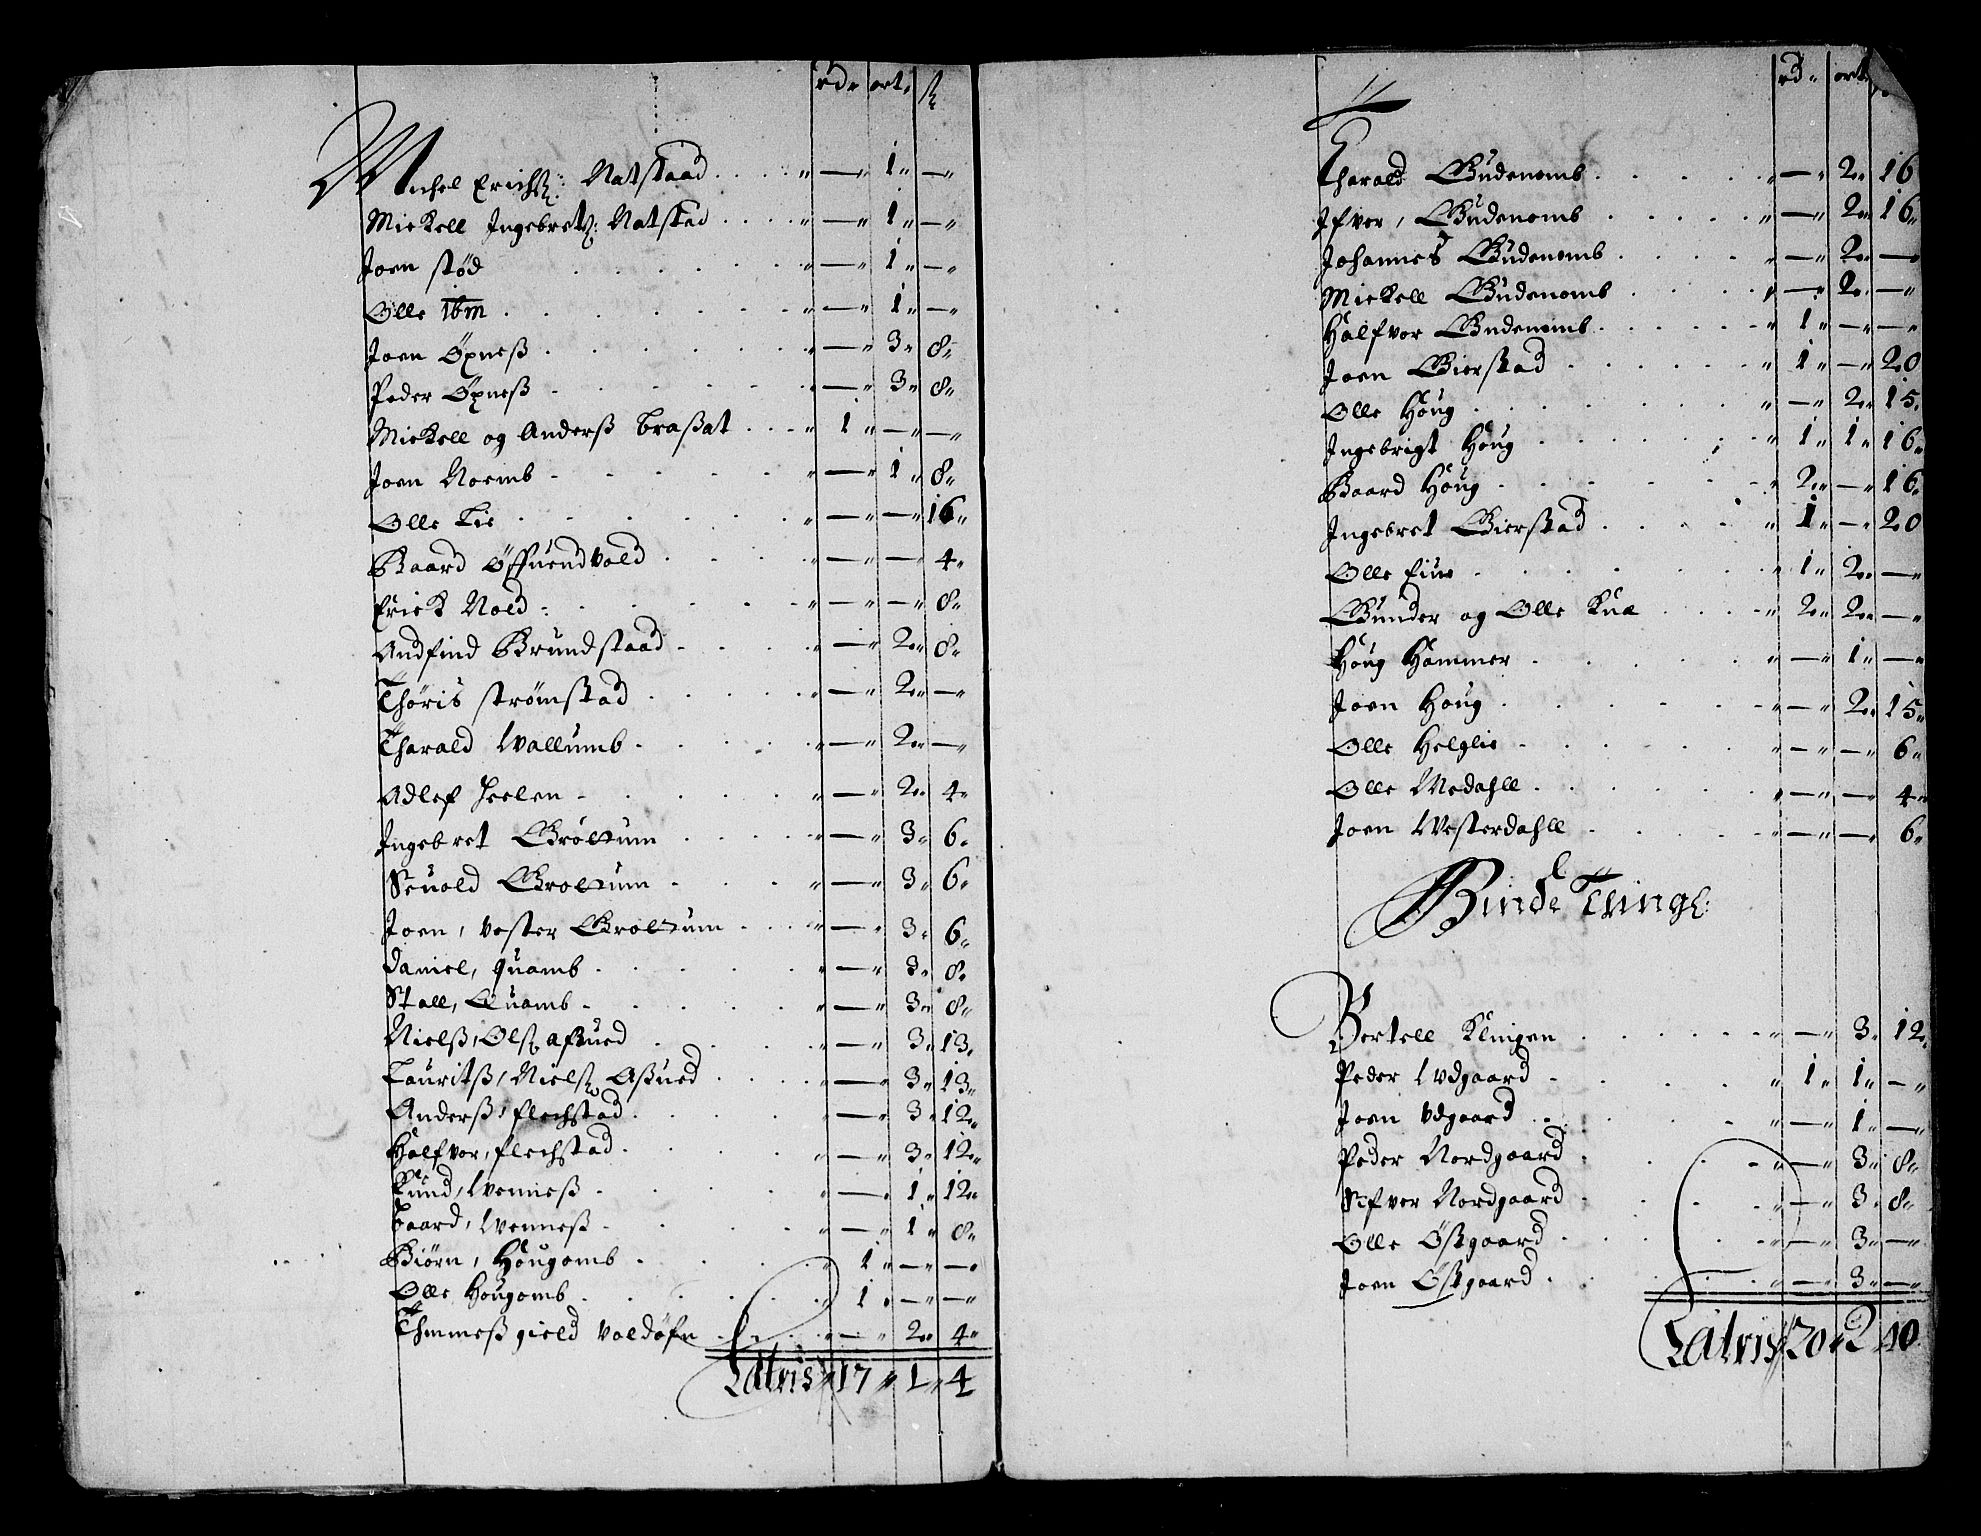 rd ort ß
Michel Erichß: Natstaad — 1 —
Mickell Ingebretß: Natstad — 1 —
Joen stød — 1 —
Olle ibm — 1 —
Joen Øxneß — 3 8
Peder Øxneß — 3 8
Mickell og Anderß braßat 1 — —
Joen Noemb — 1 8
Olle Lie — — 16
Baard Øffuendvold — — 4
Erick Nold — — 8
Andfind Brundstaad — 2 8
Thøris strømstad — 2 —
Tharald Wallumb — 2 —
Adlef — 2 4
Ingebret Grøltum — 3 6
Seuold Groltum — 3 6
Joen, vester Groltum — 3 6
Daniel, quamb — 3 8
Stall, Quamb — 3 8
Nielß, Olß — 3 13
Lauritß, Nielß Aßued — 3 13
Anderß, flechstad — 3 12
Halfvor, flechstad — 3 12
Knud, Wenneß — 1 12
baard, Wenneß — 1 8
Biørn, Hougomb 1 — —
Olle Hougomb 1 — —
Thmmeß gield — 2 4
Latris 17 1 4
rd ort
Tharald Gudenomb — 2 16
Ifver, Gudenomb — 2 16
Johannes Gudenomb — 2 —
Mickell Gudenomb — 2 —
Halfvor Gudenomb 1 — —
Joen Gierstad 1 — 20
Olle Houg — 2 15
Ingebrigt Houg 1 1 16
Baard Houg 2 — 16
Ingebret Gierstad 1 — 20
Olle 1 2 —
Gunder og Olle Kuæ 2 2 —
Houg Hammer — 1 —
Joen Houg — 2 15
Olle Helglie — — 6
Olle Medahll — — 4
Joen Westerdahll — — 6
Binde Thingl:
Bertell Klingen — 3 12
Peder Wdgaard 1 1 —
Joen Vdgaard — 1 —
Peder Nordgaard — 3 8
Sifver Nordgaard — 3 8
Olle Østgaard — 3 —
Joen Østgaard — 3 —
Latris 20 2 10